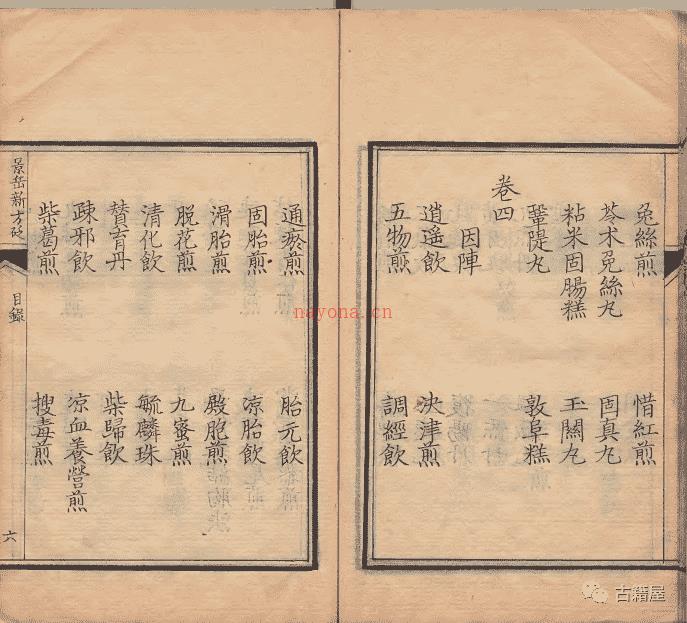 兔絲煎 惜紅煎
苓术兔絲丸 固真丸
粘米固腸糕 玉關丸
鞏隄丸 敦阜糕
卷四
因陣
逍遥飲 決津煎
五物煎 調經飲
通瘀煎 胎元飲
固胎煎 凉胎飲
滑胎煎 殿胞煎
脫花煎 九蜜煎
清化飲 毓麟珠
贊育丹 柴歸飲
疎邪飲 凉血養營煎
柴葛煎 搜毒煎
景岳新方砭 目錄 六
nayona.cn
古籍屋